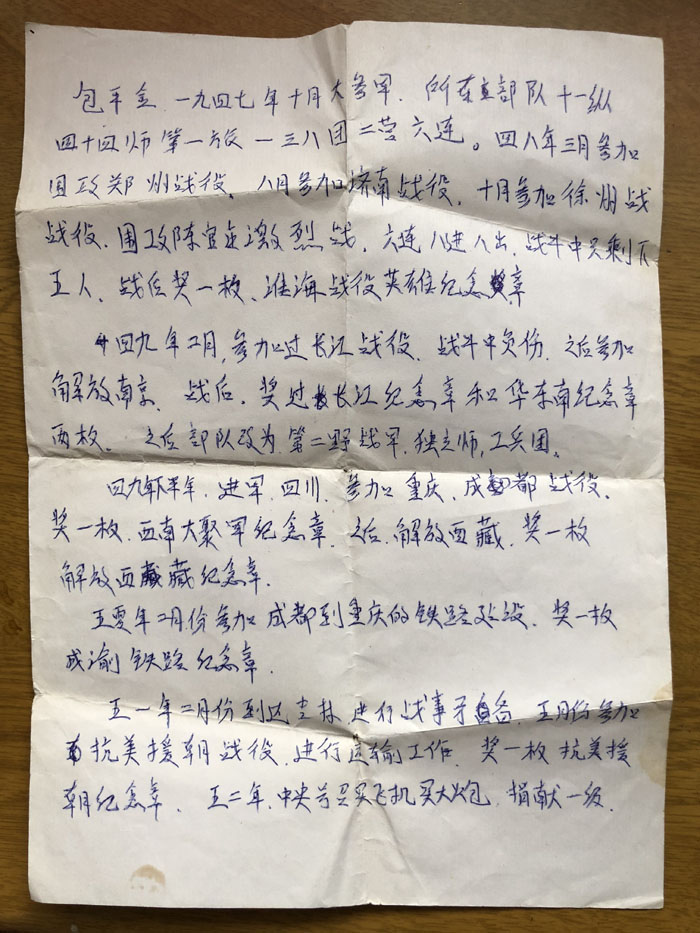 包平金、一九四七年十月大参军、所在部队十一纵
四十四师第一旅一三八团二营六连。四八年三月参加
围攻郑州战役、八月参加济南战役、十月参加徐州战
战役、围攻陈官庄激烈战、六连八进八出、战斗中只剩下
五人、战后奖一枚、淮海战役英雄纪念章
四九年2月,参加过长江战役、战斗中负伤、之后参加
解放南京、战后、奖过长江纪念章和华东南纪念章
两枚、之后部队改为第二野战军、独立师,工兵团、
四九年下半年、进军四川、参加重庆、成都战役、
奖一枚、西南大聚军纪念章、之后、解放西藏、奖一枚
解放西藏纪念章、
五零年2月份参加成都到重庆的铁路建设、奖一枚
成渝铁路纪念章、
五一年二月份到达吉林、进行战事予备、五月份参加
抗美援朝战役、进行运输工作、奖一枚抗美援
朝纪念章、五二年、中央号召买飞机买大炮、捐献一级、